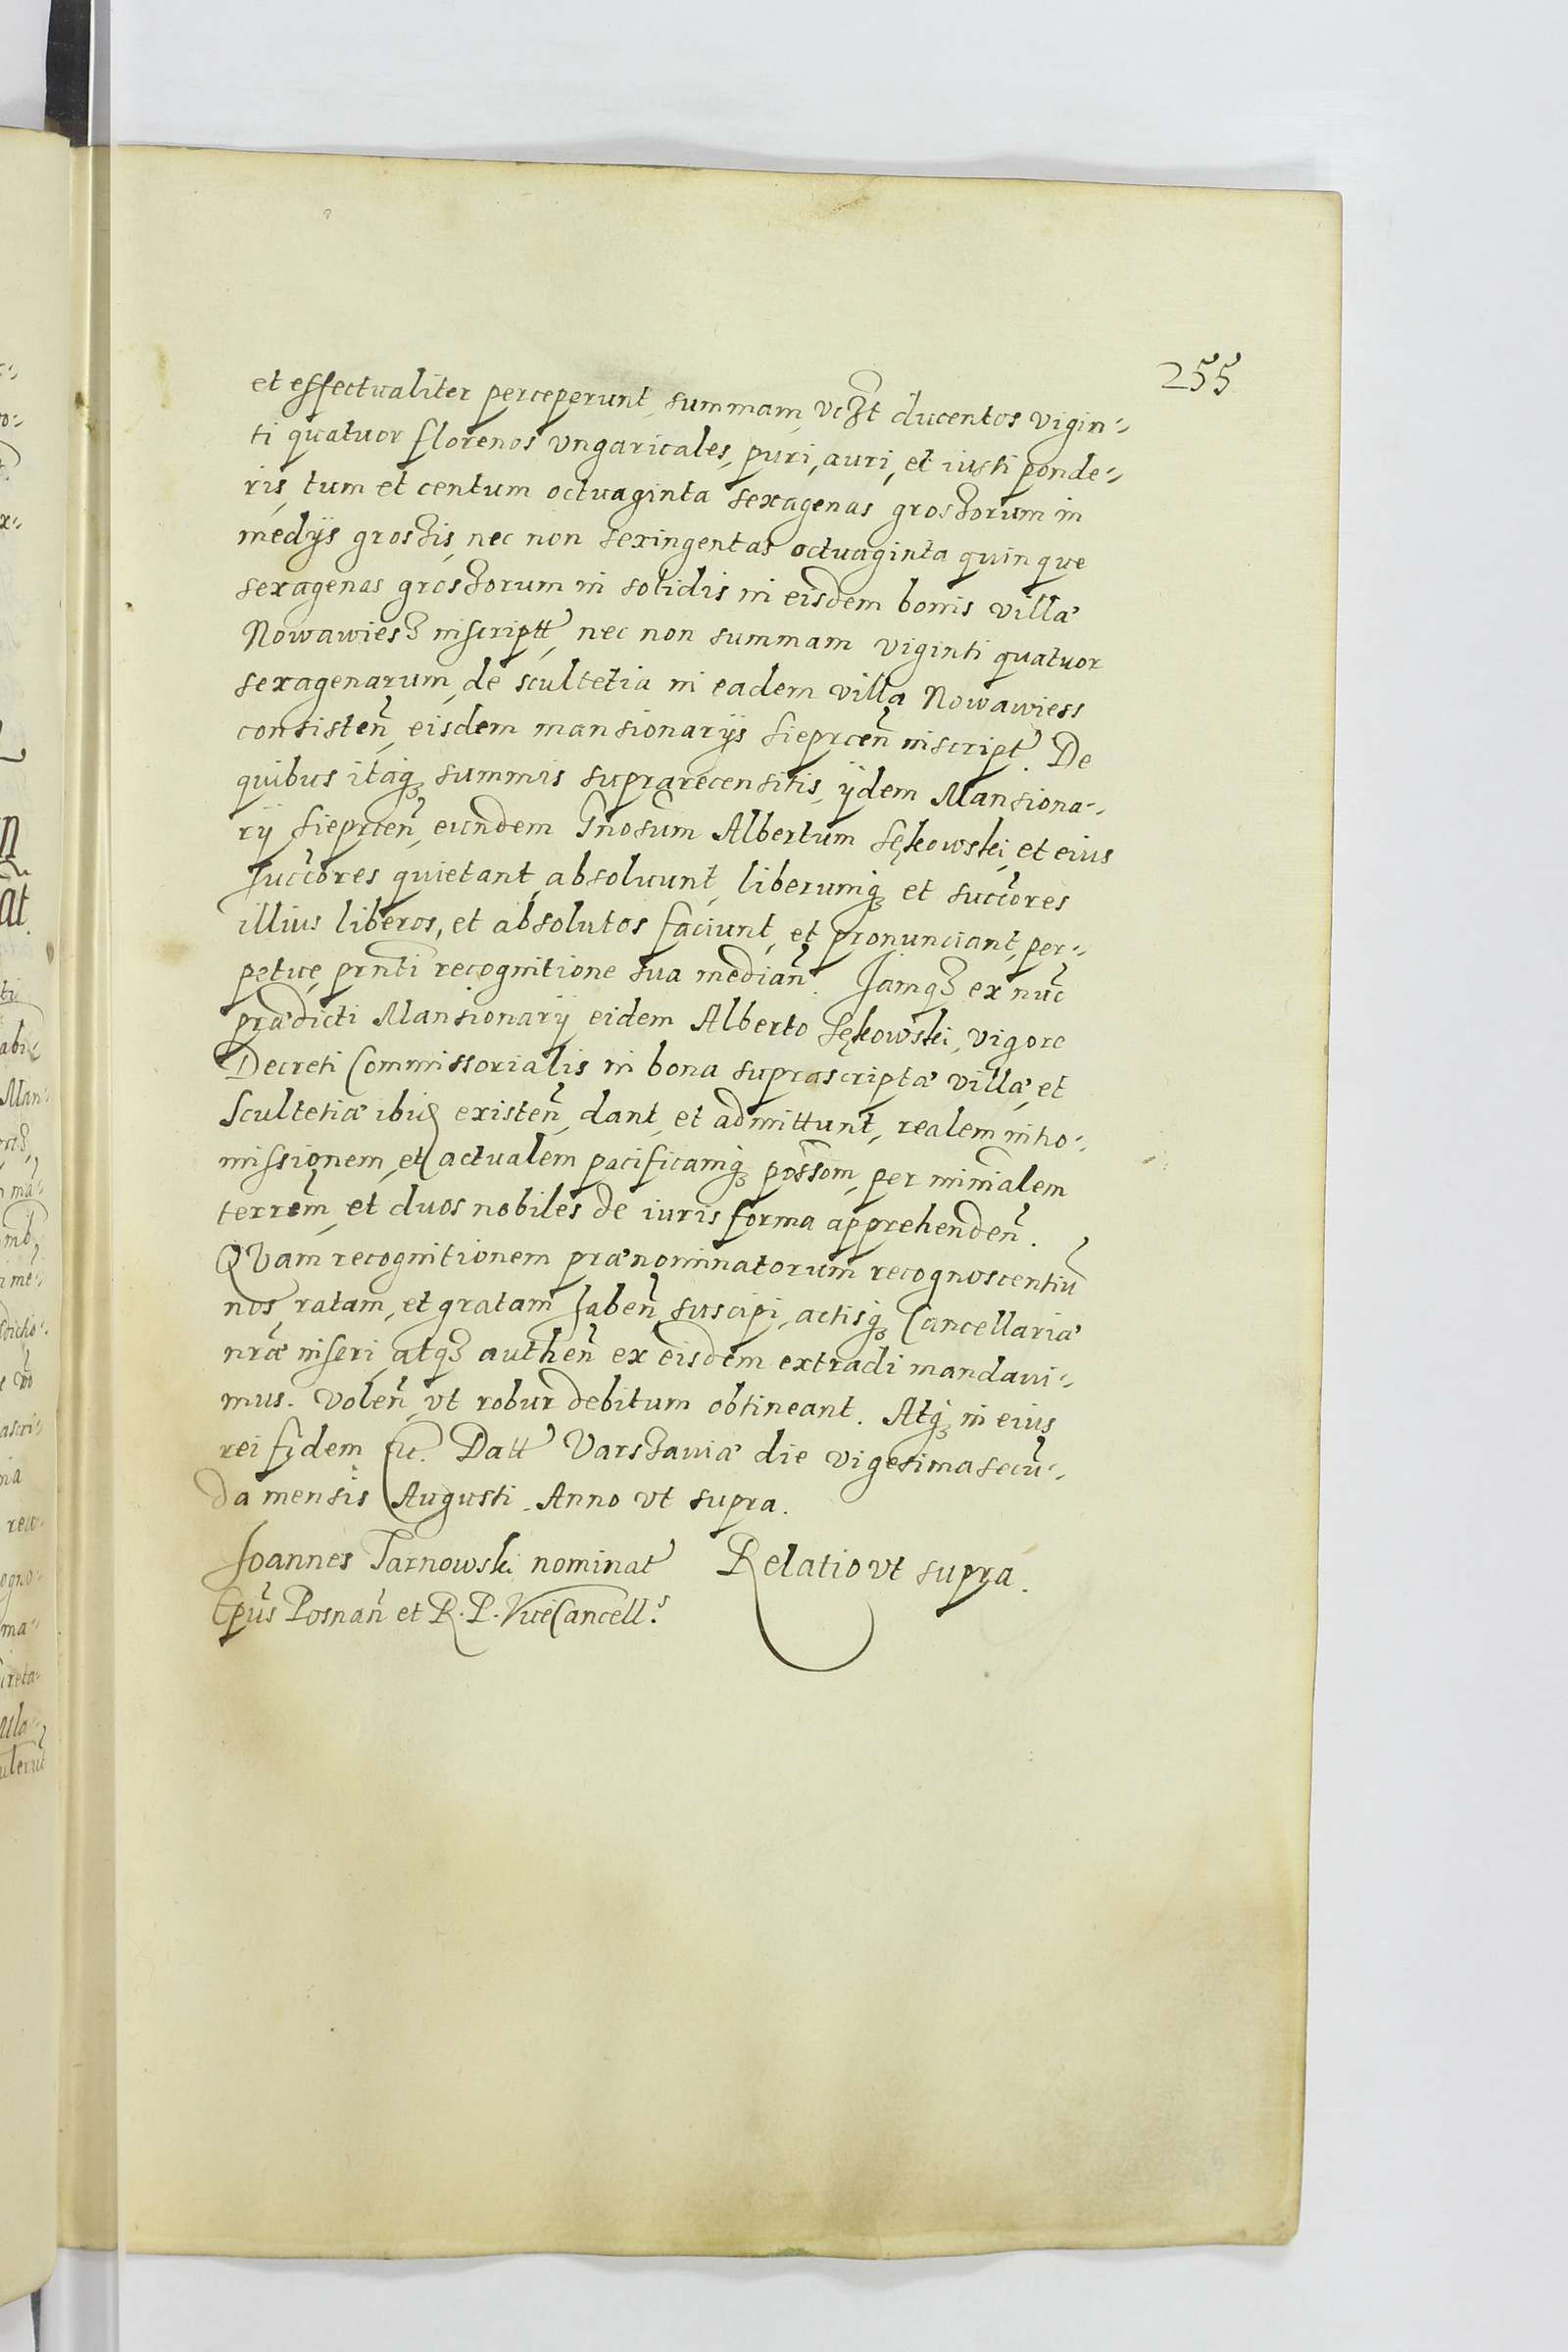 255
et effectualiter perceperunt, summam, vczt ducentos vigin-
ti quatuor florenos vngaricales, puri, auri, et iusti ponde-
ris, tum et centum octuaginta sexagenas groszorum in
medijs groszis, nec non sexingentas octuaginta quinque
sexagenas groszorum in solidis in eisdem bonis villæ
Nowawiesz inscriptt, nec non summam viginti quatuor
sexagenarum, de scultetia in eadem villa Nowawiess
consisten̄, eisdem mansionarijs Sieprcen̄ inscript. De
quibus itaq; summis suprarecensitis, ijdem Mansiona-
rij Sieprcen̄, eundem Gnosum Albertum Sękowski, et eius
succōres quietant, absoluunt, liberumq; et succōres
illius liberos, et absolutos faciunt, et pronunciant, per-
petue, prn̄ti recognitione sua median̄. Iamqz ex nuc̄
prædicti Mansionarij eidem Alberto Sękowski, vigore
Decreti Commissorialis in bona suprascriptæ villæ, et
Scultetiæ ibid existen̄, dant, et admittunt, realem intro-
missionem, et actualem pacificamq; pōssom, per minīalem
terrem̄, et duos nobiles de iuris forma apprehenden̄.
QVam recognitionem prænominatorum recognoscentiū
nos, ratam, et gratam haben̄, suscipi, actisq; Cancellariæ
nrǣ inseri, atqz authen̄ ex eisdem extradi mandaui-
mus. Volen̄, vt robur debitum obtineant. Atq; in eius
rei fidem etc. Datt Varszauiæ die vigesima secū-
da mensis Augusti. Anno vt supra.
Ioannes Tarnowski nominat Relatio vt supra.
Epūs Posnan̄ et R. P. ViceCancell.s